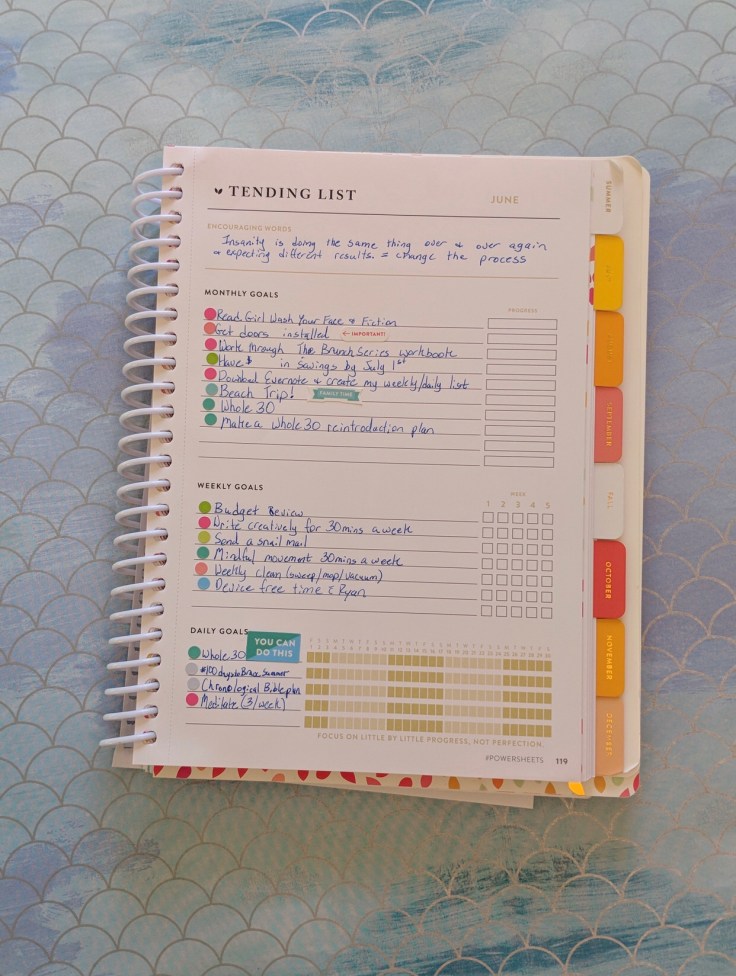 TENDING LIST
JUNE
ENCOURAGING WORDS
Insanity is doing the same thing over & over again
& expecting different results. = change the process
MONTHLY GOALS
PROGRESS
Read Girl Wash Your Face & Fiction
Get doors installed ←IMPORTANT!
Work through The Brunch Series workbook
Have $ in Savings by July 1st
Download Evernote & create my weekly/daily list
Beach Trip! FAMILY TIME
Whole 30
Make a Whole 30 reintroduction plan
WEEKLY GOALS
WEEK
1 2 3 4 5
Budget Review
Write creatively for 30mins a week
Send a snail mail
Mindful movement 30mins a week
Weekly clean (sweep/mop/vacuum)
Device free time Ryan
DAILY GOALS
YOU CAN
DO THIS
Whole 30
Chronological Bible plan
Meditate (3/week)
FOCUS ON LITTLE BY LITTLE PROGRESS, NOT PERFECTION.
#POWERSHEETS 119
SUMMER
JULY
AUGUST
SEPTEMBER
FALL
OCTOBER
NOVEMBER
DECEMBER